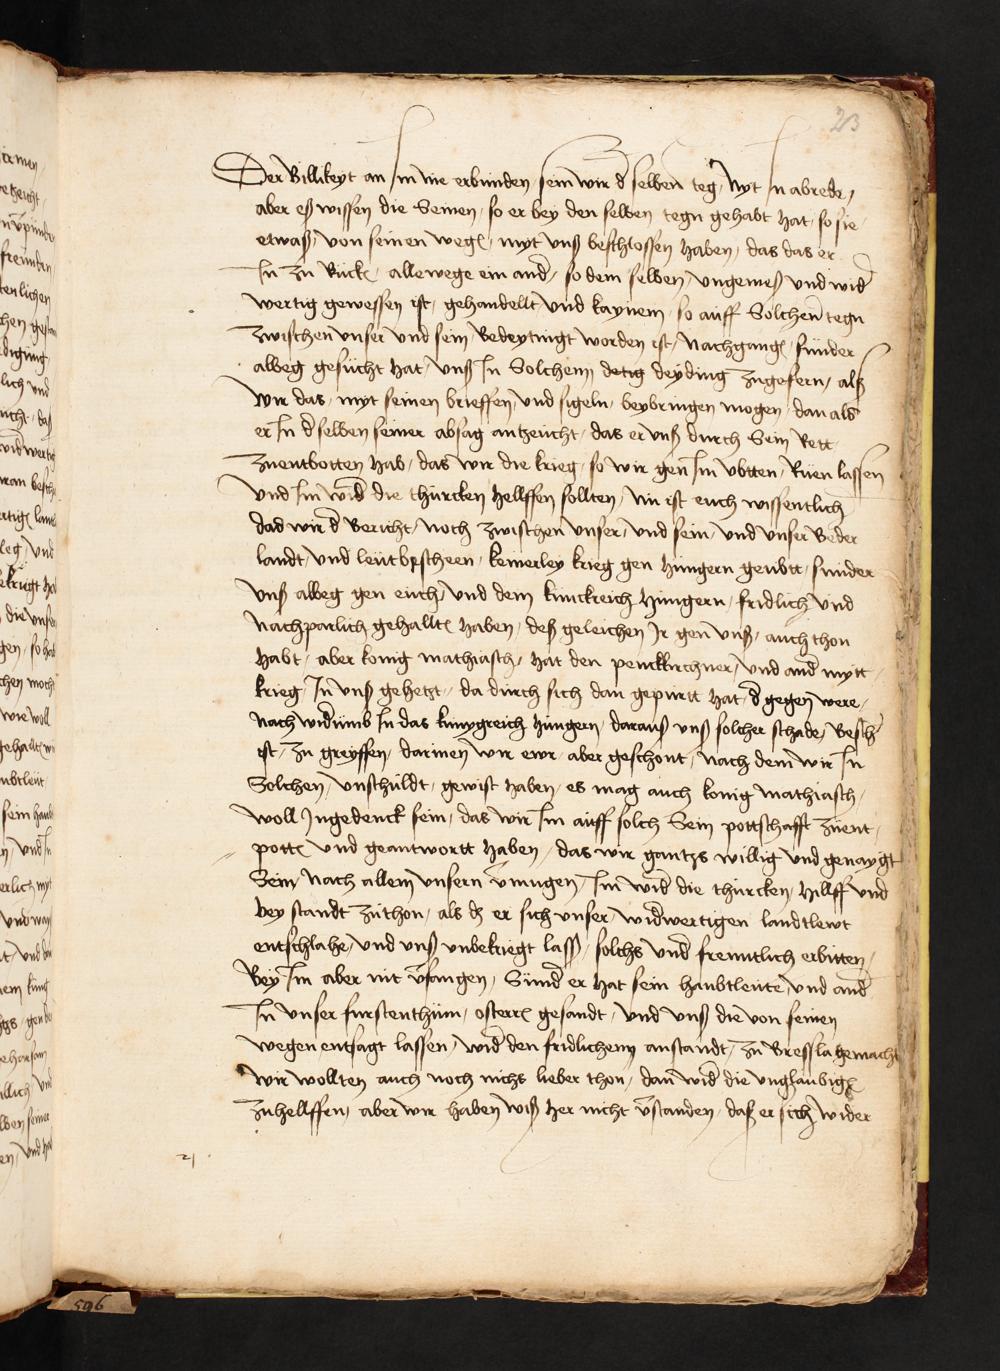 23
Der Billikeyt an Im nie erbinden sein wir d̄ selben teg nyt In abrede /
aber eß wissen die Seinen / so er bey den selben tegn gehabt hat / so sie
etwaß / von seinen wegē / myt vnß beschlossen haben / das das er
In zu Rückē / allewege ein and̄ / so dem selben / vngemeß vnd wid̄
wertig gewessen ist / gehandellt vnd kaynem / so auff Solchen tegn
zwischen vnser vnd sein / Bedeytingt worden ist / Nachgangē / sunder
alweg gesücht hat / vnß In Solchem detig deyding zugefern / alß
wir das / myt seinen brieffen / vnd sigeln / beybringen mogen / dan als
er In d̄ selben seiner absag antzeucht / das er vnß durch Sein Rett
zuentbotten hab / das wir die krieg / so wir gen Im vbtten / Ruen lassen
vnd Im wid̄ die thürcken hellffen sollten / nu ist euch wissentlich
dad wir d̄ Bericht / noch zwischen vnser / vnd sein / vnd vnser Beder
landt / vnd leut bescheen / keinerley krieg gen hungern geubtt / sunder
vnß alweg gen euch / vnd dem kunckreich hungern / fridlich vnd
Nachparlich gehalltē haben / deß geleichen Ir gen vnß / auch thon
habt / aber konig mathiasch / hat den penckkirchner / vnd and̄ mytt
krieg / In vnß gehetzt / da durch sich dan gepurtt hat / d̄ gegen were /
Nach widumb In das kunygreich hungern / darauß vnß solcher schade / Besch̄
ist / zu greyffen / darinen wir ewr / aber geschont / Nach dem wir In
Solchen / vnschuldt / gewist haben / es mag auch konig mathiasch /
woll Ingedenck sein / das wir Im auff solch Sein pottschafft zuent /
pottē vnd geantwortt haben / das wir gantzs willig vnd genaygt
Sein / Nach allem vnsern v̄mugen / Im wid̄ die thurcken / hillff vnd
bey standt zuthon / als dz er sich vnser / widwertigen landtlewt
entschlahe / vnd vnß vnbekriegt lass / solchs vnd̄ freuntlich erbitten /
Bey Im aber nit v̄fangen / Sund̄ er hat sein haubtleute / vnd and̄
In vnser furstenthum / osterrē gesandt / vnd vnß die von seinen
wegen entsagt lassen / wid̄ den fridlichem anstandt / zu Bressla gemacht
wir wollten auch noch nichs lieber thon / dan wid̄ die vnglaubigē
zuhellffen / aber wir haben wiß her nicht v̄standen / daß er sich wider
596